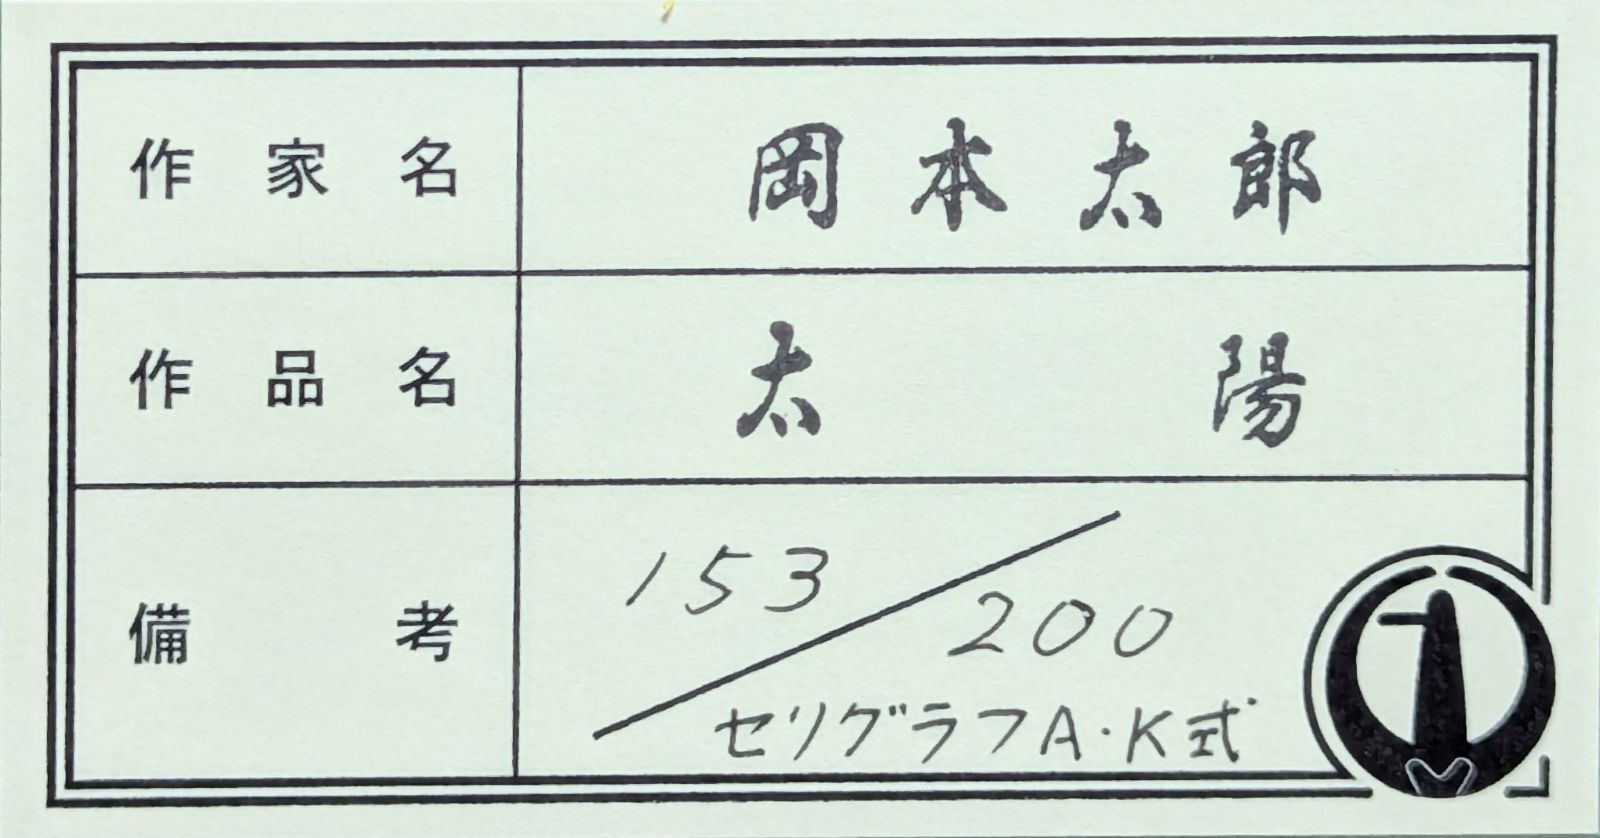 作家名 岡本太郎
作品名 太陽
備考 153/200
セリグラフA・K式